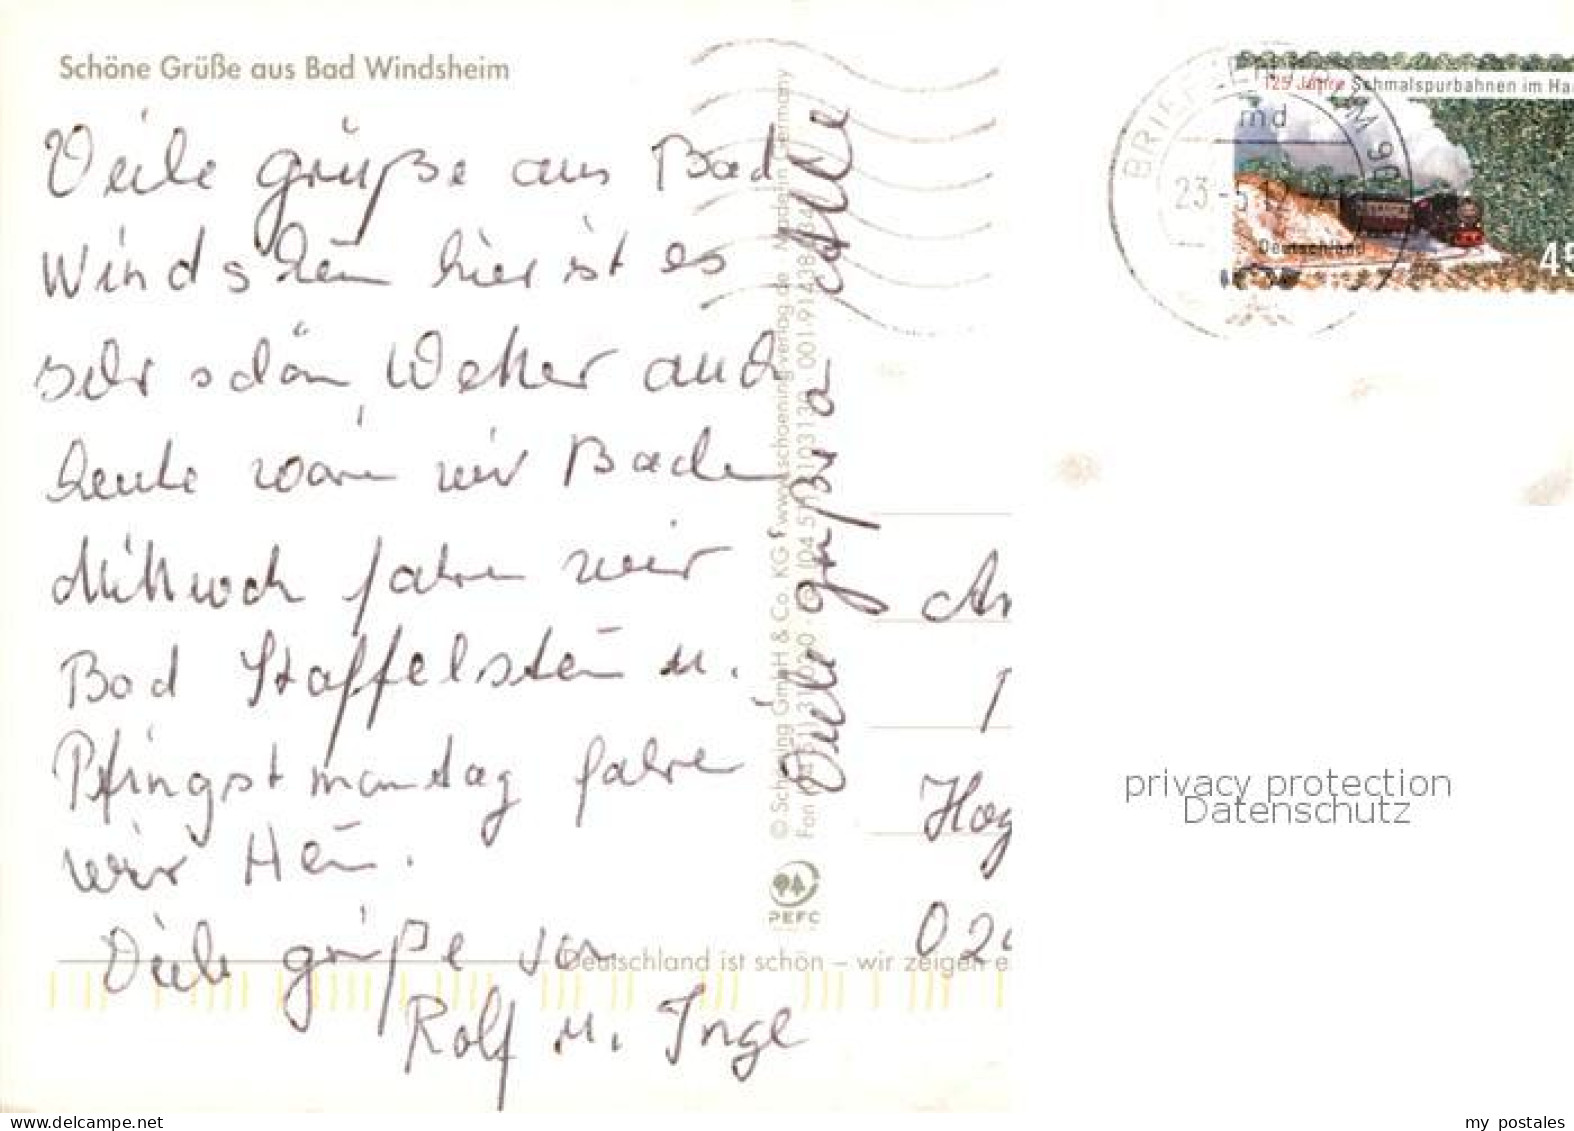 Schöne Grüße aus Bad Windsheim
Veile grüße aus Bad
Windsheim hier ist es
sehr schön Wetter auch
heute waren wir Baden
Mittwoch fahren wir
Bad Staffelstein u.
Pfingstmontag fahren
wir Heim.
Viele grüße von
Rolf u. Inge
Viele grüße a alle
© Schöning GmbH & Co. KG · www.schoening-verlag.de · Made in Germany
PEFC
Deutschland ist schön – wir zeigen e
125 Jahre Schmalspurbahnen im Ha
Deutschland
45
BRIEFZENTRUM 96
md
23.-5.12.-21
An
Hog
02
privacy protection
Datenschutz
my postales